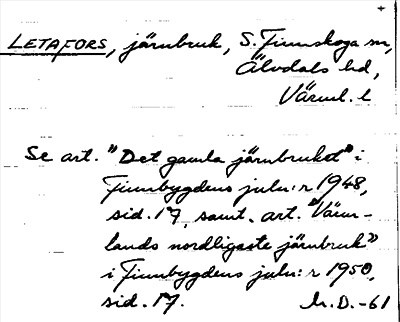 LETAFORS, järnbruk, S. Finnskoga sn,
Älvdals hd,
Värml. l
Se art. "Det gamla järnbruket" i
Finnbygdens julnr 1948,
sid. 17, samt art. "Värm-
lands nordligaste järnbruk"
i Finnbygdens julnr 1950,
sid. 17. M.D. -61